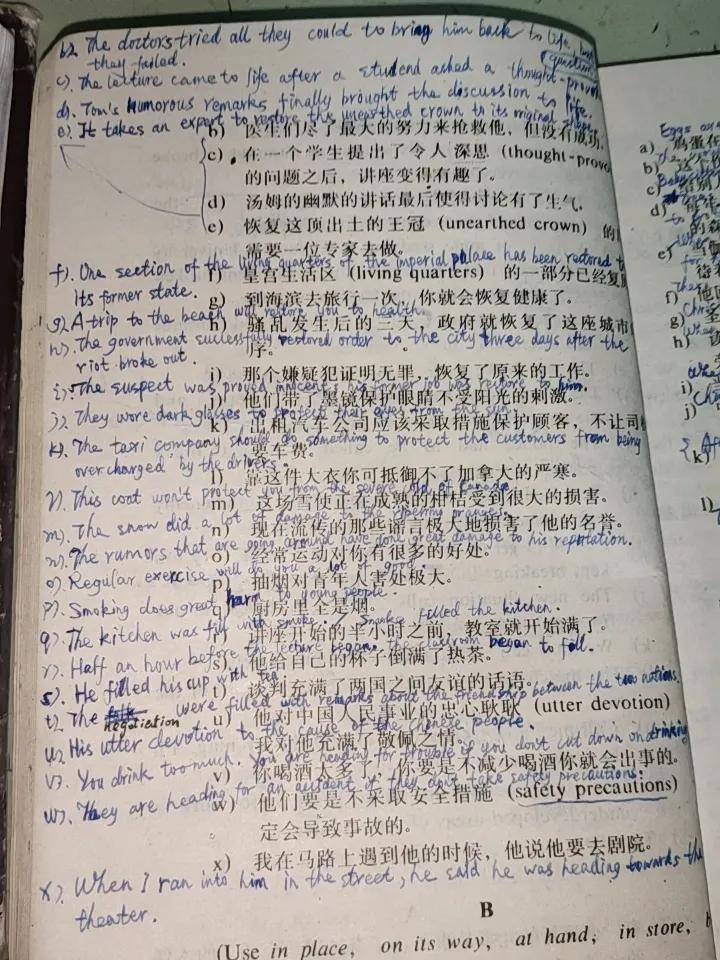 b). The doctors tried all they could to bring him back to life, but
they failed.
c). The lecture came to life after a studend asked a thought-provo
question
d). Tom's humorous remarks finally brought the discussion to life.
e). It takes an expert to restore this unearthed crown to its original
b) 医生们尽了最大的努力来抢救他，但没有成功。
c) 在一个学生提出了令人深思 (thought-provo
的问题之后，讲座变得有趣了。
d) 汤姆的幽默的讲话最后使得讨论有了生气。
e) 恢复这顶出土的王冠 (unearthed crown) 的
需要一位专家去做。
f). One section of the living quarters of the imperial palace has been restored t
its former state.
f) 皇宫生活区 (living quarters) 的一部分已经复
g) 到海滨去旅行一次，你就会恢复健康了。
g). A trip to the beach will restore you to health.
h) 骚乱发生后的三天，政府就恢复了这座城市
序。
h). The government successfully restored order to the city three days after the
riot broke out.
i) 那个嫌疑犯证明无罪，恢复了原来的工作。
i). The suspect was proved innocent, his former job was restore to him.
j) 他们带了墨镜保护眼睛不受阳光的刺激。
j). They wore dark glasses to protect their eyes from the sun.
k) 出租汽车公司应该采取措施保护顾客，不让司
要车费。
k). The taxi company should do something to protect the customers from being
overcharged by the drivers.
l) 靠这件大衣你可抵御不了加拿大的严寒。
l). This coat won't protect you from the severe cold of Canada.
m) 这场雪使正在成熟的柑桔受到很大的损害。
m). The snow did a lot of damage to the ripening oranges.
n) 现在流传的那些谣言极大地损害了他的名誉。
n). The rumors that are going around have done great damage to his reputation.
o) 经常运动对你有很多的好处。
o). Regular exercise will do you a lot of good.
p) 抽烟对青年人害处极大。
p). Smoking does great harm to young people.
q) 厨房里全是烟。
q). The kitchen was fill with smoke. / Smoke filled the kitchen.
r) 讲座开始的半小时之前，教室就开始满了。
r). Half an hour before the lecture began, the classroom began to fill.
s) 他给自己的杯子倒满了热茶。
s). He filled his cup with tea.
t) 谈判充满了两国之间友谊的话语。
t). The negotiation were filled with remarks about the friendship between the two nations.
u) 他对中国人民事业的忠心耿耿 (utter devotion)
我对他充满了敬佩之情。
u). His utter devotion to the cause of the Chinese people.
v) 你喝酒太多了，你要是不减少喝酒你就会出事的。
v). You drink too much. You are heading for trouble if you don't cut down on drinking
w) 他们要是不采取安全措施 (safety precautions)
定会导致事故的。
w). They are heading for an accident if they don't take safety precautions.
x) 我在马路上遇到他的时候，他说他要去剧院。
x). When I ran into him in the street, he said he was heading towards the
theater.
B
(Use in place, on its way, at hand, in store,